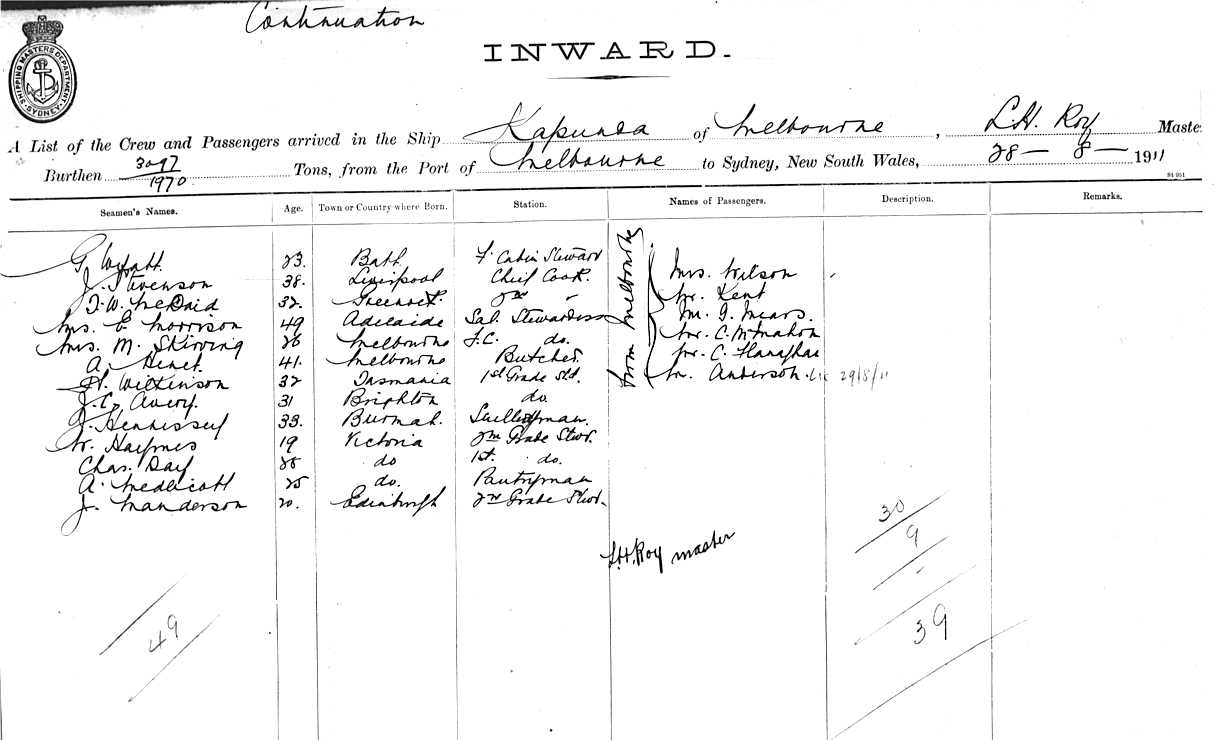 Continuation
INWARD.
SHIPPING MASTERS DEPARTMENT SYDNEY
A List of the Crew and Passengers arrived in the Ship Kapunda of Melbourne, L.H. Roy Maste
Burthen 3097/1970 Tons, from the Port of Melbourne to Sydney, New South Wales, 28 - 8 - 1911
Seamen's Names. Age. Town or Country where Born. Station. Names of Passengers. Description. Remarks.
from Melbourne
G. Wyatt 23. Bath F. Cabin Steward
J. Stevenson 38. Liverpool Chief Cook. Mrs. Wilson
T.W. McDaid 32. 2nd " Mr. Kent
Mrs. E Morrison 49 Adelaide Sal. Stewardess M. J. Mears.
Mrs. M. Skirving 26 Melbourne F.C. do. Mr. C. McMahon
A. 41. Melbourne Butcher. Mr. C. Flanaghan
H. Wilkinson 32 Tasmania 1st Grade Std. Anderson. 29/8/11
J.C. Avery. 31 Brighton do
J. Hennessey 33. Burmah. Sculleryman.
W. Haymes 19 Victoria 2nd Grade Stwd.
Chas. Day 28 do 1st. do.
A. Medlicott 25 do. Pantryman
J. Manderson 20. Edinburgh 2nd Grade Stwd.
30
9
L.H. Roy master
39
49